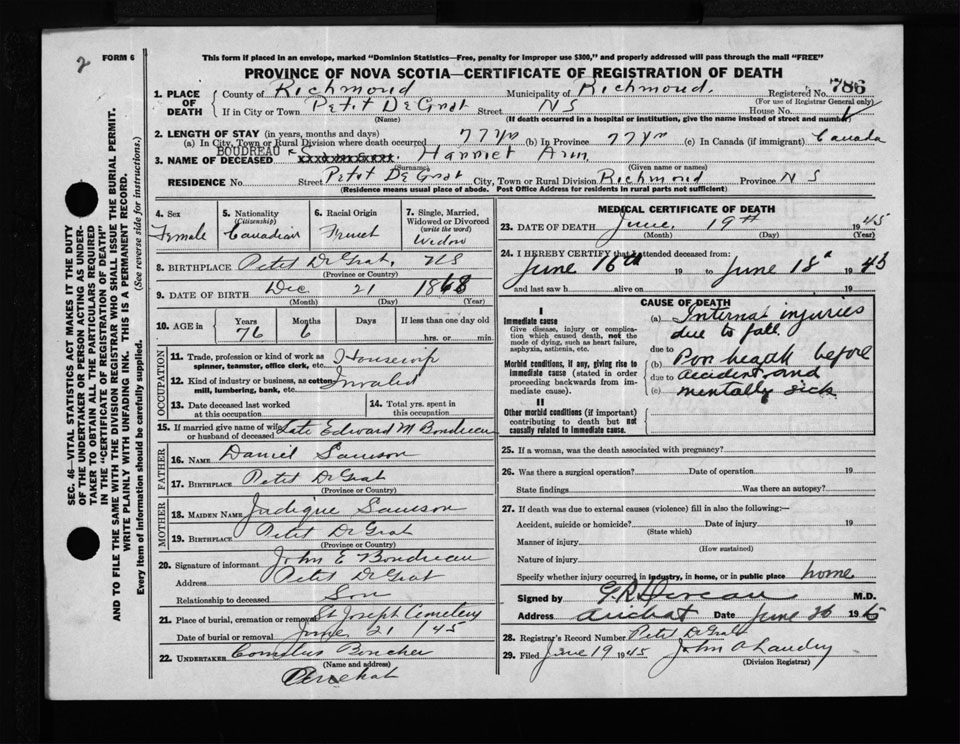 2
FORM 6
This form if placed in an envelope, marked "Dominion Statistics—Free, penalty for improper use $300," and properly addressed will pass through the mail "FREE"
PROVINCE OF NOVA SCOTIA—CERTIFICATE OF REGISTRATION OF DEATH
SEC. 46—VITAL STATISTICS ACT MAKES IT THE DUTY
OF THE UNDERTAKER OR PERSON ACTING AS UNDER-
TAKER TO OBTAIN ALL THE PARTICULARS REQUIRED
IN THE "CERTIFICATE OF REGISTRATION OF DEATH"
AND TO FILE THE SAME WITH THE DIVISION REGISTRAR WHO SHALL ISSUE THE BURIAL PERMIT.
WRITE PLAINLY WITH UNFADING INK. THIS IS A PERMANENT RECORD.
Every item of information should be carefully supplied. (See reverse side for instructions.)
1. PLACE OF DEATH County of Richmond Municipality of Richmond. Registered No. 786
(For use of Registrar General only)
If in City or Town Petit De Grat Street NS House No.
(Name) (If death occurred in a hospital or institution, give the name instead of street and number)
2. LENGTH OF STAY (in years, months and days)
(a) In City, Town or Rural Division where death occurred 77 yrs (b) In Province 77 yrs (c) In Canada (if immigrant) Canada
3. NAME OF DECEASED BOUDREAU Harriet Ann
(Surname) (Given name or names)
RESIDENCE No. Street Petit De Grat City, Town or Rural Division Richmond Province N S
(Residence means usual place of abode. Post Office Address for residents in rural parts not sufficient)
4. Sex Female
5. Nationality (Citizenship) Canadian
6. Racial Origin French
7. Single, Married, Widowed or Divorced (write the word) Widow
8. BIRTHPLACE Petit De Grat, NS
(Province or Country)
9. DATE OF BIRTH Dec 21 1868
(Month) (Day) (Year)
10. AGE in Years 76 Months 6 Days If less than one day old hrs. or min.
OCCUPATION
11. Trade, profession or kind of work as spinner, teamster, office clerk, etc. Housewife
12. Kind of industry or business, as cotton mill, lumbering, bank, etc. Invalid
13. Date deceased last worked at this occupation
14. Total yrs. spent in this occupation
15. If married give name of wife or husband of deceased Late Edward M Boudreau
FATHER
16. NAME Daniel Samson
17. BIRTHPLACE Petit De Grat
(Province or Country)
MOTHER
18. MAIDEN NAME Samson
19. BIRTHPLACE Petit De Grat
(Province or Country)
20. Signature of informant John E Boudreau
Address Petit De Grat
Relationship to deceased Son
21. Place of burial, cremation or removal St Joseph Cemetery
Date of burial or removal June 21 /45
22. UNDERTAKER Cornelius
(Name and address)
Arichat
MEDICAL CERTIFICATE OF DEATH
23. DATE OF DEATH June, 19th 1945
(Month) (Day) (Year)
24. I HEREBY CERTIFY that I attended deceased from:
June 16th 19 to June 18th 1945
and last saw h alive on 19
CAUSE OF DEATH
I
Immediate cause
Give disease, injury or complica-
tion which caused death, not the
mode of dying, such as heart failure,
asphyxia, asthenia, etc.
(a) Internal injuries
due to fall
due to
Morbid conditions, if any, giving rise to
immediate cause (stated in order
proceeding backwards from im-
mediate cause).
(b) Poor health before
due to accident and
(c) mentally sick
II
Other morbid conditions (if important)
contributing to death but not
causally related to immediate cause.
25. If a woman, was the death associated with pregnancy?
26. Was there a surgical operation? Date of operation 19
State findings Was there an autopsy?
27. If death was due to external causes (violence) fill in also the following:—
Accident, suicide or homicide? Date of injury 19
(State which)
Manner of injury
(How sustained)
Nature of injury
Specify whether injury occurred in industry, in home, or in public place home
Signed by M.D.
Address Arichat Date June 26 1945
28. Registrar's Record Number Petit De Grat
29. Filed June 19 1945 John A Landry
(Division Registrar)